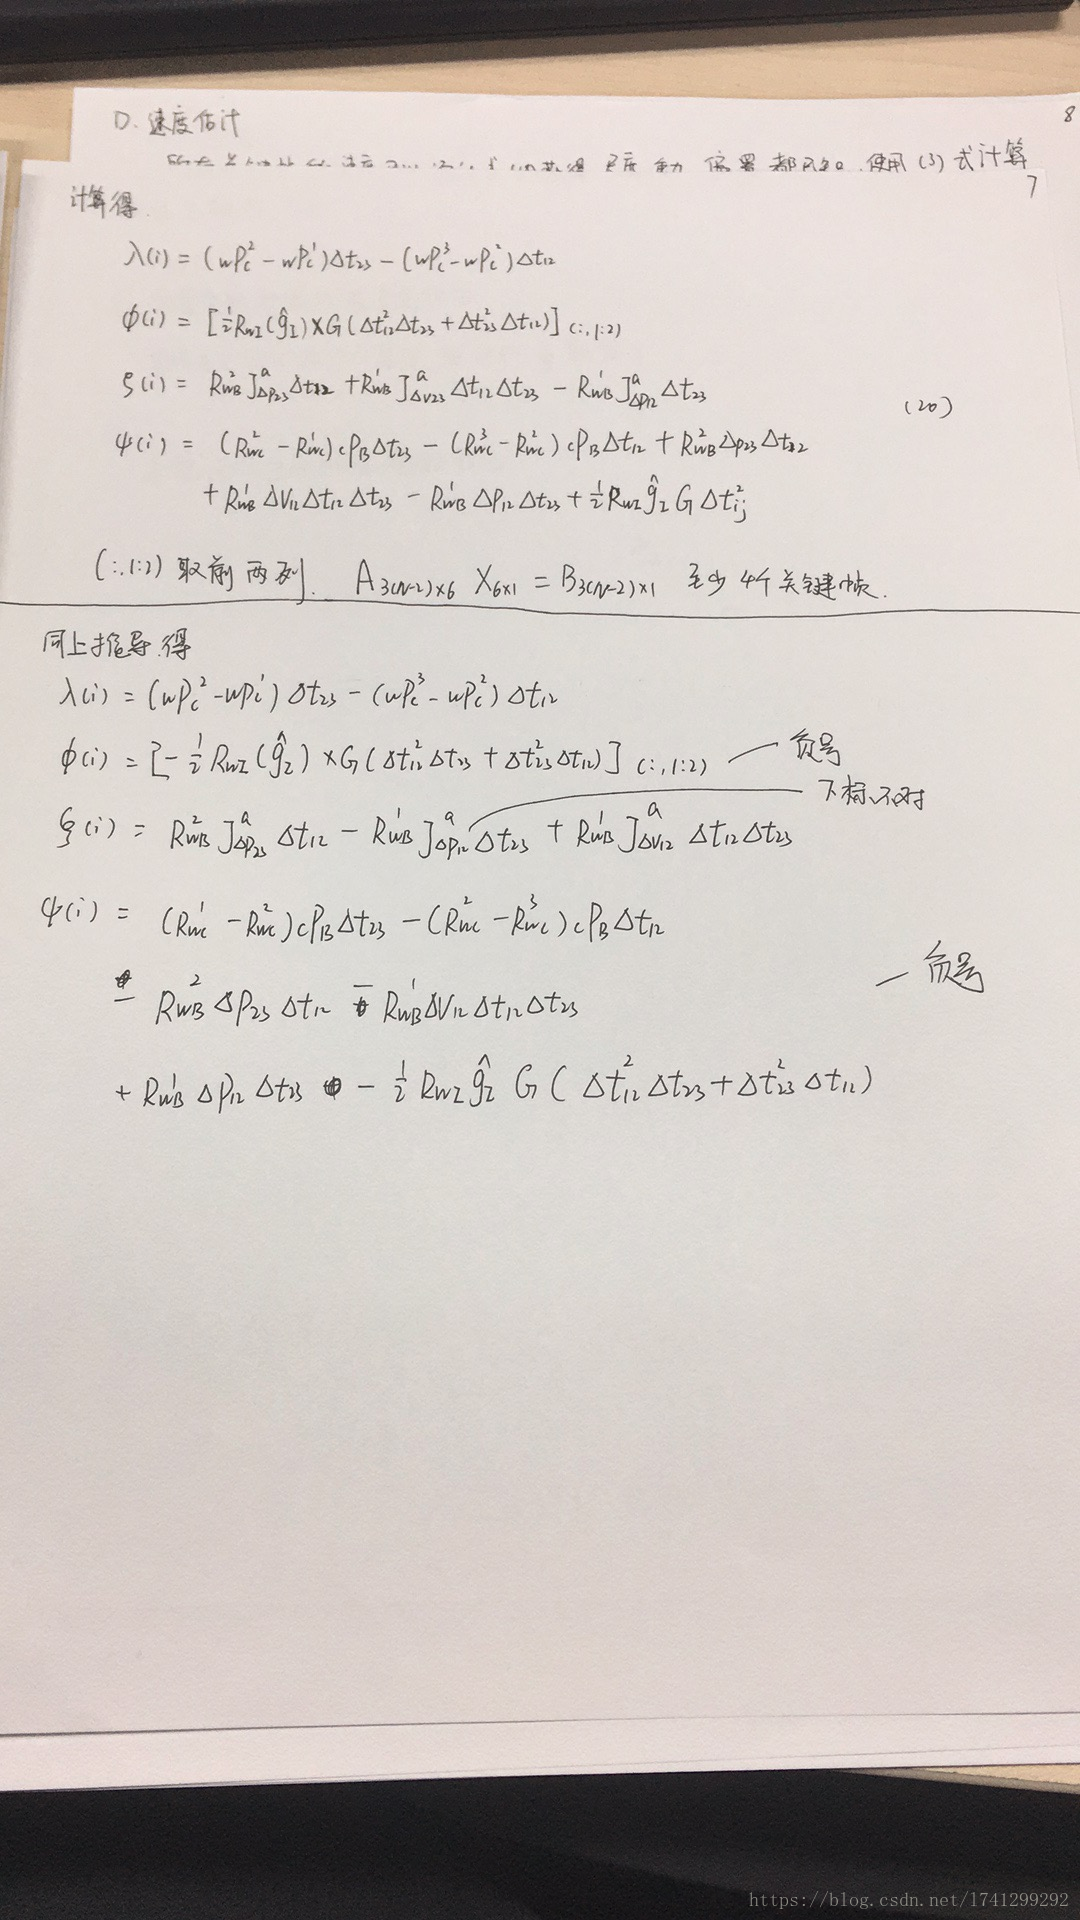 D. 速度估计
8
都 使用 (3) 式计算
7
计算得
λ(i) = (wPc² - wPc¹)Δt23 - (wPc³ - wPc²)Δt12
φ(i) = [½RwI(ĝI)×G(Δt²12Δt23 + Δt²23Δt12)](:,1:2)
ζ(i) = R²WB J^a ΔP23 Δt12 + R¹WB J^a ΔV23 Δt12Δt23 - R¹WB J^a ΔP12 Δt23
(20)
ψ(i) = (R²wc - R¹wc)cPBΔt23 - (R³wc - R²wc)cPBΔt12 + R²WBΔP23Δt12
+ R¹WBΔV12Δt12Δt23 - R¹WBΔP12Δt23 + ½RwIĝI G Δt²ij
(:,1:2) 取前两列. A3(N-2)×6 X6×1 = B3(N-2)×1 至少4个关键帧.
同上推导得
λ(i) = (wPc² - wPc¹)Δt23 - (wPc³ - wPc²)Δt12
φ(i) = [-½RwI(ĝI)×G(Δt²12Δt23 + Δt²23Δt12)](:,1:2) — 负号
下标不对
ζ(i) = R²WB J^a ΔP23 Δt12 - R¹WB J^a ΔP12 Δt23 + R¹WB J^a ΔV12 Δt12Δt23
ψ(i) = (R¹wc - R²wc)cPBΔt23 - (R²wc - R³wc)cPBΔt12
— 负号
- R²WBΔP23Δt12 - R¹WBΔV12Δt12Δt23
+ R¹WBΔP12Δt23 - ½RwIĝI G(Δt²12Δt23 + Δt²23Δt12)
https://blog.csdn.net/1741299292